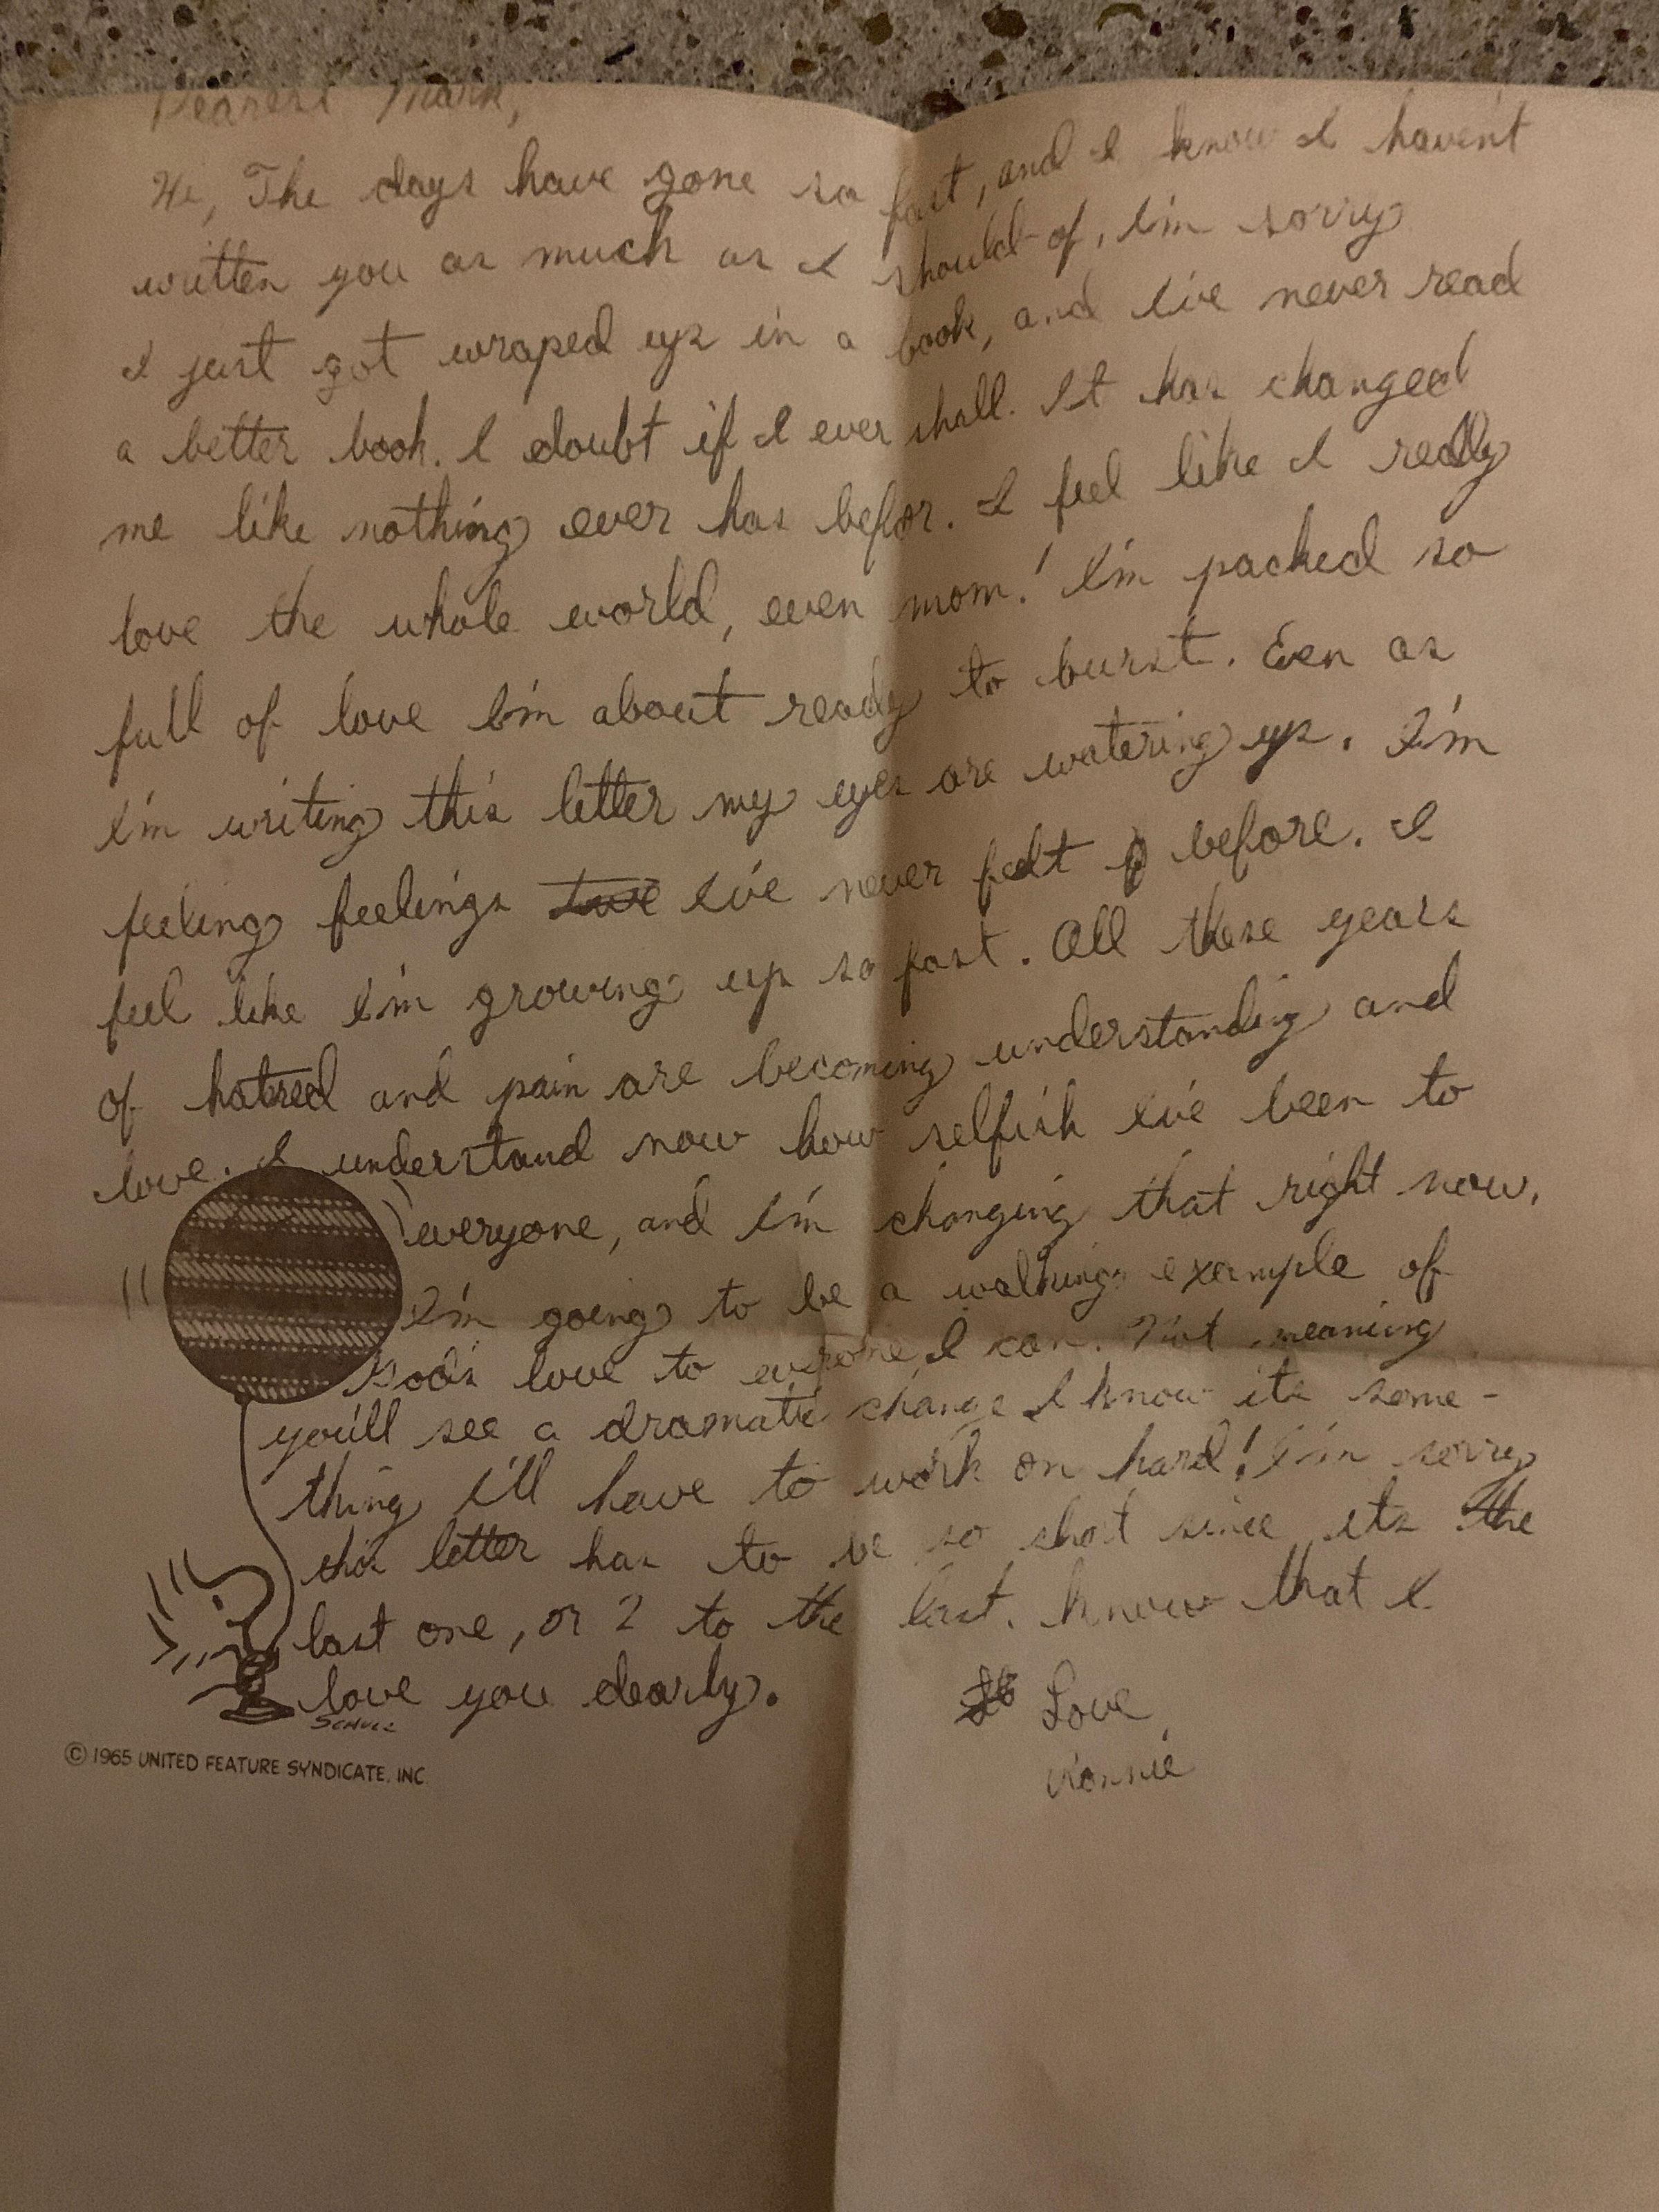 Dearest Mark,
Hi, The days have gone so fast, and I know I haven't
written you as much as I should of, I'm sorry
I just got wraped up in a book, and I've never read
a better book. I doubt if I ever shall. It has changed
me like nothing ever has befor. I feel like I really
love the whole world, even mom! I'm packed so
full of love I'm about ready to burst. Even as
I'm writing this letter my eyes are watering up. I'm
feeling feelings I've never felt before. I
feel like I'm growing up so fast. All these years
of hatred and pain are becoming understanding and
love. I understand now how selfish I've been to
everyone, and I'm changing that right now.
I'm going to be a walking example of
God's love to everyone I can. Not meaning
you'll see a dramatic change I know its some-
thing I'll have to work on hard! I'm sorry
this letter has to be so short since its the
last one, or 2 to the last. Know that I
love you dearly.
Love,
SCHULZ
© 1965 UNITED FEATURE SYNDICATE, INC.